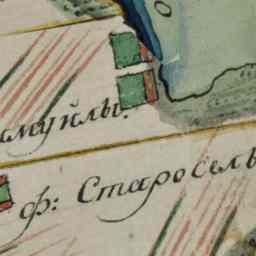 муйлы.
ф: Старосель